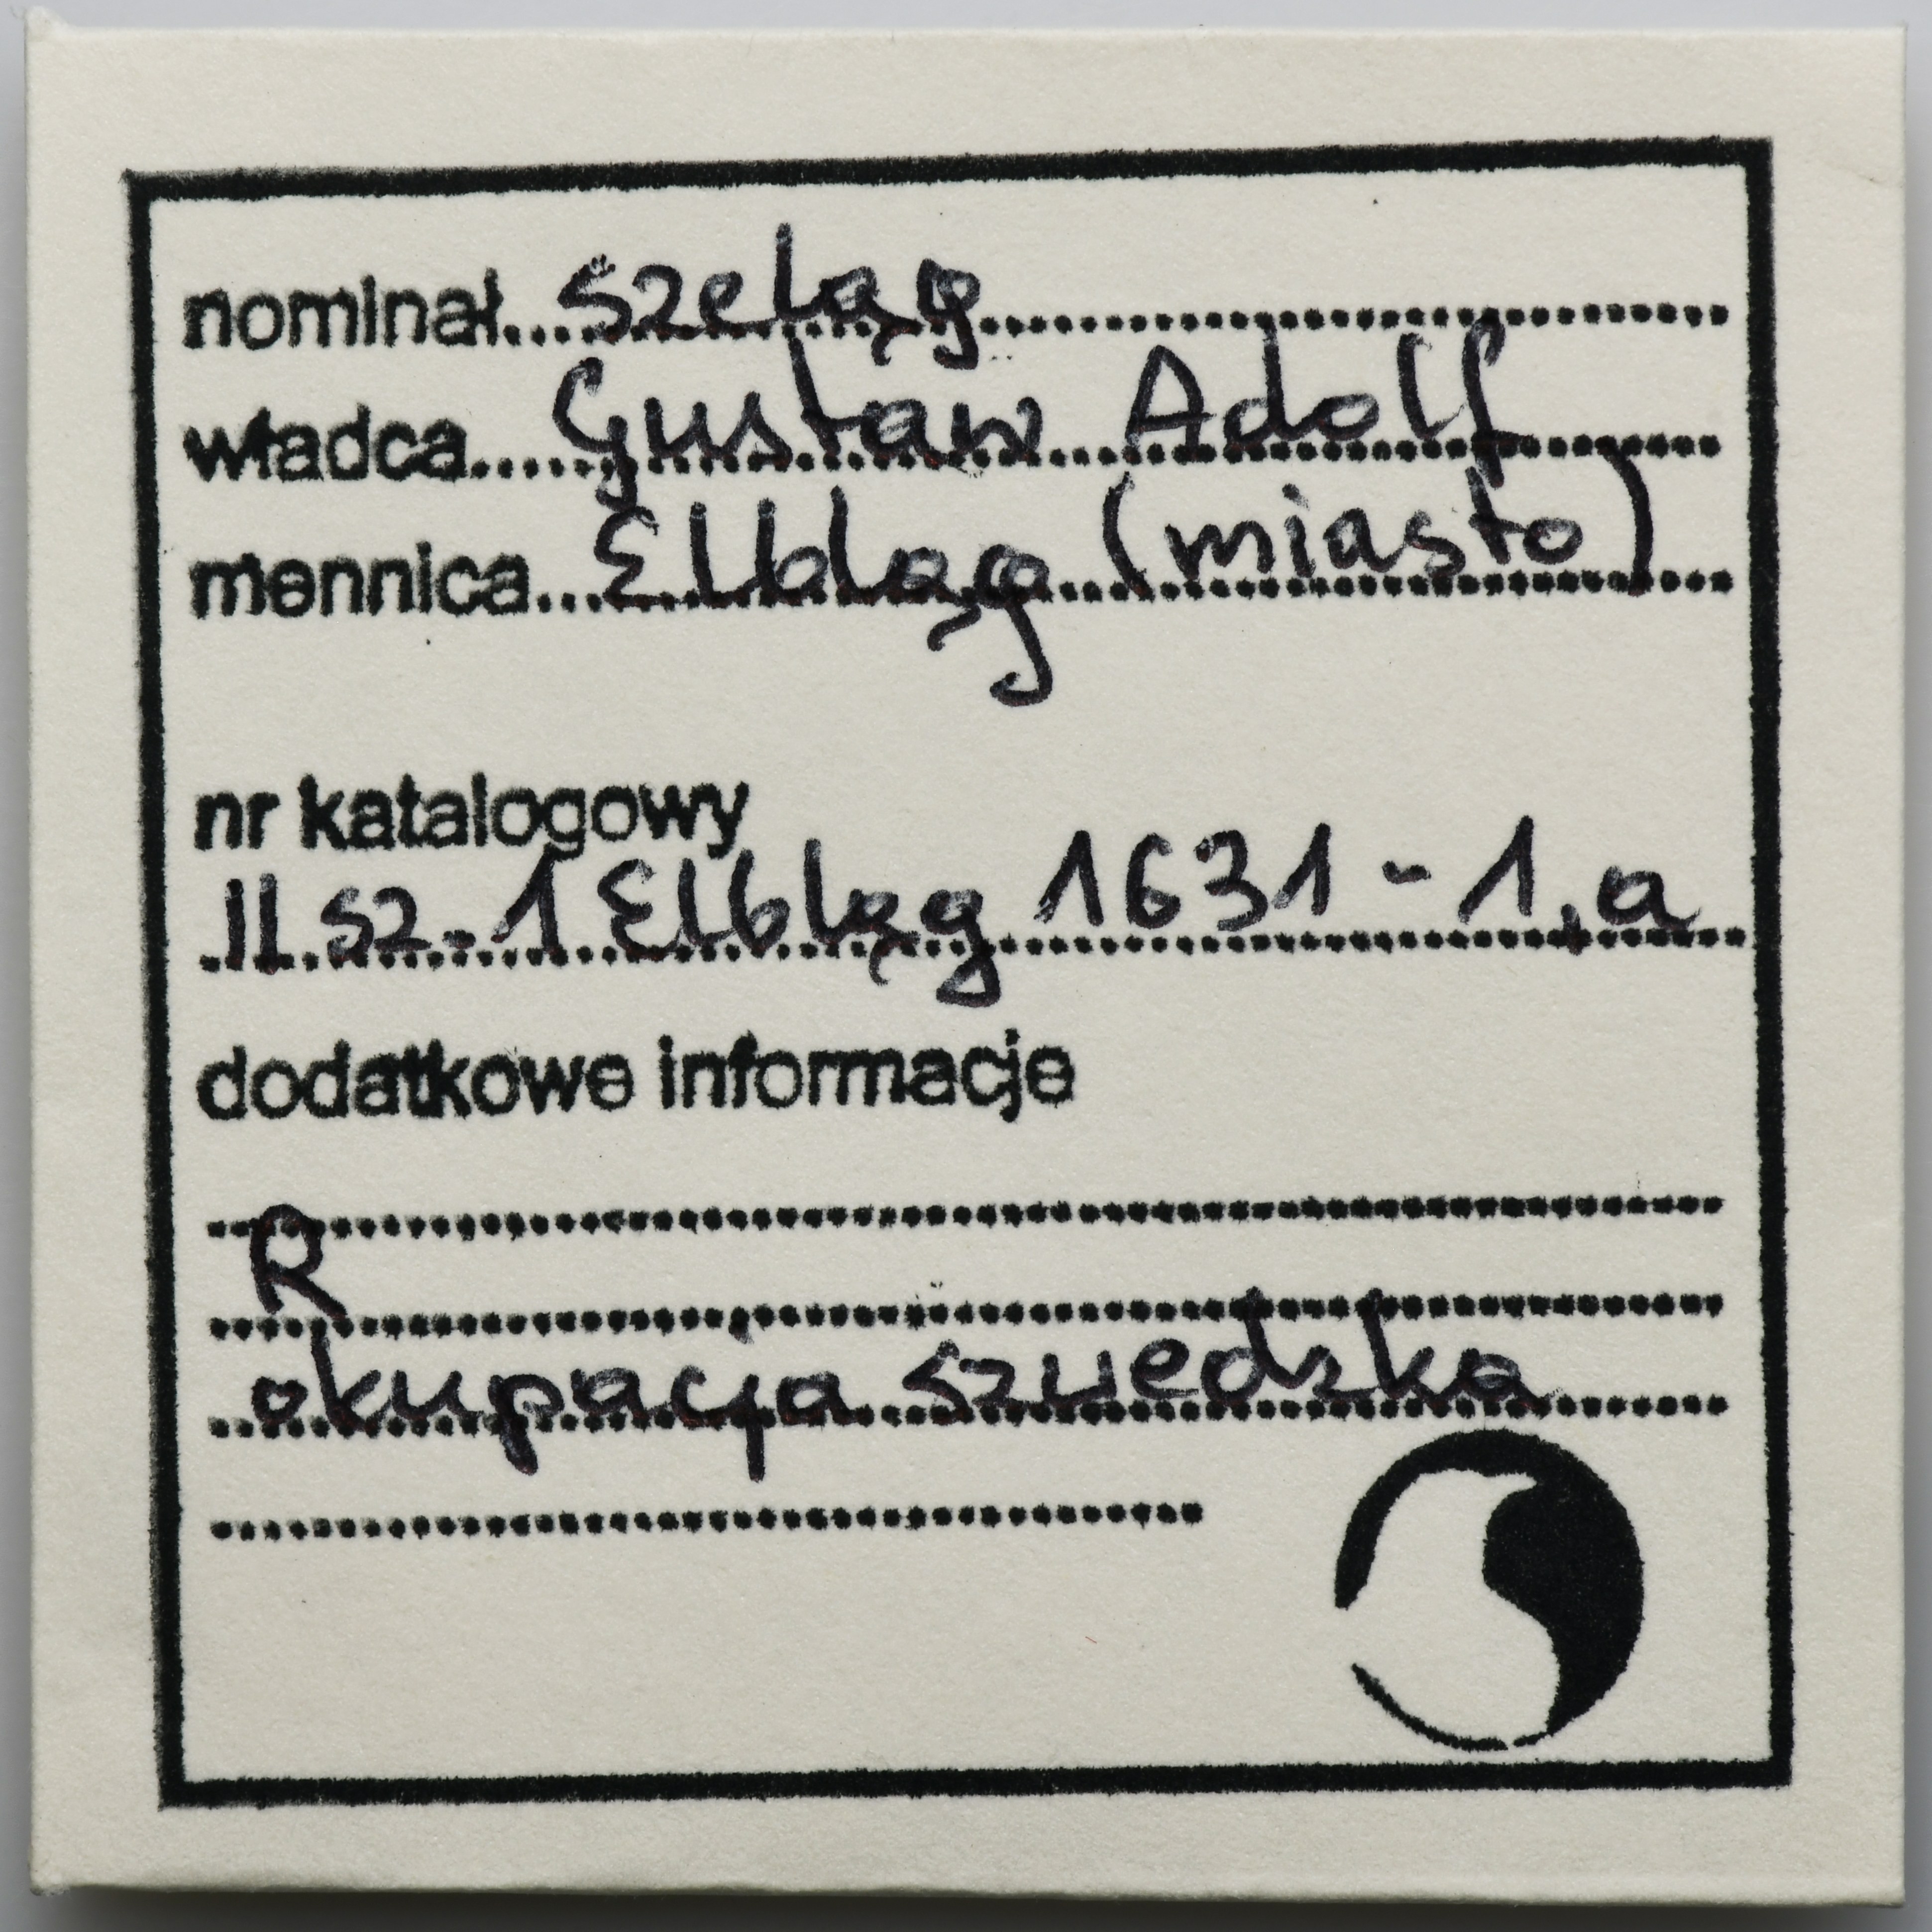 nominał...szeląg
władca....Gustaw Adolf
mennica...Elbląg (miasto)
nr katalogowy
II.sz.-1 Elbląg 1631-1,a
dodatkowe informacje
R
okupacja szwedzka